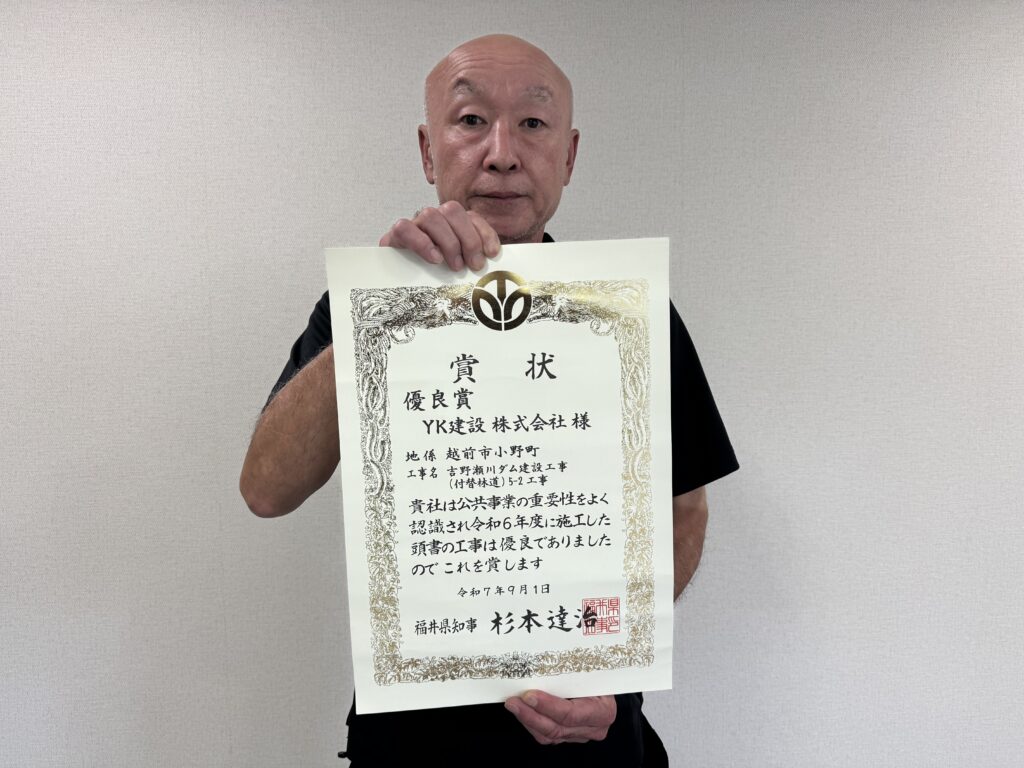 賞状
優良賞
YK建設 株式会社 様
地係 越前市小野町
工事名 吉野瀬川ダム建設工事
(付替林道)5-2工事
貴社は公共事業の重要性をよく
認識され令和6年度に施工した
頭書の工事は優良でありました
のでこれを賞します
令和7年9月1日
福井県知事 杉本達治